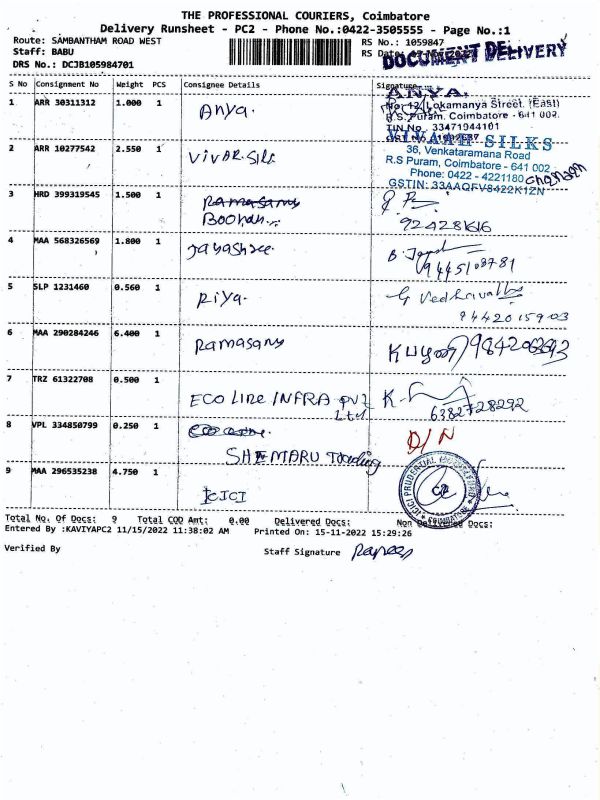 THE PROFESSIONAL COURIERS, Coimbatore
Delivery Runsheet - PC2 - Phone No.:0422-3505555 - Page No.:1
Route: SAMBANTHAM ROAD WEST
RS No.: 1059847
Staff: BABU
RS Date:
DOCUMENT DELIVERY
DRS No.: DCJB105984701
S No Consignment No Weight PCS Consignee Details Signature
1 ARR 30311312 1.000 1 Anya.
ANYA.
No.12, Lokamanya Street. (East)
R.S. Puram. Coimbatore - 641 002.
TIN No. 33471944101
2 ARR 10277542 2.550 1 VIVAR. Silk
SILKS
36, Venkataramana Road
R.S Puram, Coimbatore - 641 002
Phone: 0422 - 4221180
GSTIN: 33AAQFV8422K1ZN
3 HRD 399319545 1.500 1 Ramasamy
4 MAA 568326569 1.800 1 Jayashree.
5 SLP 1231460 0.560 1 Riya.
G Vedhavalli
9442015903
6 MAA 290284246 6.400 1 Ramasamy
7 TRZ 61322708 0.500 1 ECO LINE INFRA PVT
Ltd
6382728292
8 VPL 334850799 0.250 1
D/N
SHEMARU Trading
9 MAA 296535238 4.750 1 ICICI
ICICI PRUDENTIAL
COIMBATORE
Total No. Of Docs: 9 Total COD Amt: 0.00 Delivered Docs: Non Delivered Docs:
Entered By :KAVIYAPC2 11/15/2022 11:38:02 AM Printed On: 15-11-2022 15:29:26
Verified By
Staff Signature